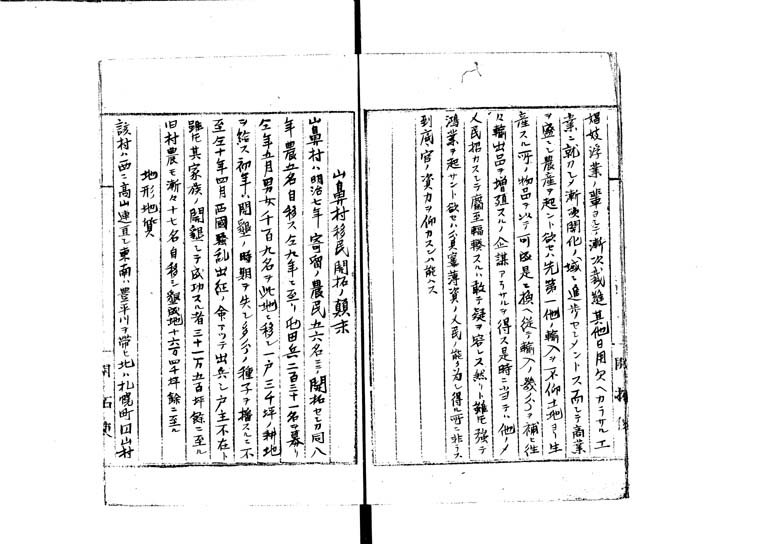 娼妓浮業ノ輩ヲシテ漸次裁縫其他日用欠ヘカラサル工
業ニ就カシメ漸次開化ノ域ニ進歩セシメントス而シテ商業
ヲ盛ニシ農産ヲ起ント欲セハ先第一他ノ輸入ヲ不仰土地ヨリ生
産スル所ノ物品ヲ以テ可成是ニ換ヘ従テ輸入ノ幾分ヲ補ヒ往
々輸出品ヲ増殖スルノ企謀アラサルヲ得ス是時ニ当テハ他ノ
人民招カスシテ腐至輻輳スルハ敢テ疑ヲ容レス然リト雖モ強テ
鴻業ヲ起サント欲セハ貧寠薄資ノ人民ノ能ク為シ得ル所ニ非ラス
到底官ノ資力ヲ仰カスンハ能ハス
開拓使
山鼻村移民開拓ノ顛末
山鼻村ハ明治七年寄留ノ農民五六名ニテ開拓セシカ同八
年農五名自移ス仝九年ニ至リ屯田兵二百三十一名ヲ募リ
仝年五月男女千百九名ヲ此地ニ移シ一戸三千坪ノ耕地
ヲ給ス初年ハ開墾ノ時期ヲ失シ多分ノ種子ヲ播スルニ不
至仝十年四月西國騒乱出征ノ命アツテ出兵シ戸主不在ト
雖モ其家族ノ開墾シテ成功スル者三十一万五百坪餘ニ至ル
旧村農モ漸々十七名自移シ墾成地十六万四千坪餘ニ至ル
地形地質
該村ハ西ニ高山連亘シ東南ハ豊平川ヲ帯ヒ北ハ札幌町円山村
開拓使